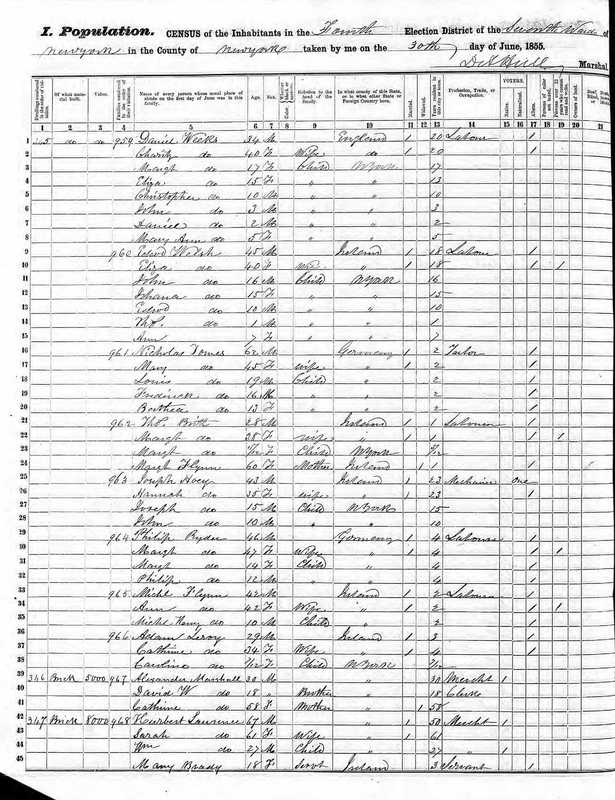 I. Population. CENSUS of the Inhabitants in the Fourth Election District of the Seventh Ward of
New york in the County of New york taken by me on the 30th day of June, 1855.
Marshal.
Of what material built. Value. Name of every person whose usual place of abode on the first day of June was in this family. Age. Sex. Relation to the head of the family. In what county of this State, or in what other State or Foreign Country born. Married. Widowed. Profession, Trade, or Occupation. VOTERS. Native. Naturalized. Aliens. Owners of land.
1 2 3 4 5 6 7 8 9 10 11 12 13 14 15 16 17 18 19 20 21
1 345 do do 959 Daniel Weeks 34 M England 1 20 Labour 1
2 Charity do 40 F Wife do 1 20 1
3 Margt do 17 F Child N York 17
4 Eliza do 15 F " " 13
5 Christopher do 10 M " " 10
6 John do 3 M " " 3
7 Daniel do 2 M " " 2
8 Mary Ann do 5 F " " 5
9 960 Edwd Welsh 45 M Ireland 1 18 Labour 1
10 Eliza do 40 F Wife " 1 18 1 1
11 John do 16 M Child N York 16
12 Johana do 15 F " " 15
13 Edwd do 10 M " " 10
14 Ths. do 1 M " " 1
15 Ann do 7 F " " 7
16 961 Nicholas 62 M Germany 1 2 Tailor 1
17 Mary do 45 F wife " 1 2 1
18 Louis do 19 M Child " 2 1
19 Frederick do 16 M " " 2 1
20 Berthea do 13 F " " 2 1
21 962 Ths. 28 M Ireland 1 1 Labourer 1
22 Margt do 28 F wife " 1 1 1 1
23 Margt do F Child N York
24 Margt Flynn 60 F Mother Ireland 1 1 1
25 963 Joseph Hoey 43 M Ireland 1 23 Mechanic One
26 Hannah do 35 F wife " 1 23 1
27 Joseph do 15 M Child N York 15
28 John do 10 M " " 10
29 964 Philip Ryder 46 M Germany 1 4 Labourer 1
30 Margt do 47 F Wife " 1 4 1 1
31 Margt do 14 F Child " 4 1
32 Philip do 12 M " " 4 1
33 965 Michl Flynn 42 M Ireland 1 2 Labourer 1
34 Ann do 42 F Wife " 1 2 1 1
35 Michl do 10 M Child " 2 1
36 966 Adam Leroy 29 M Ireland 1 3 1
37 Cathrine do 34 F Wife " 1 4 1
38 Caroline do F Child N York
39 346 Brick 5000 967 Alexander Marshall 30 M " 30 Mercht 1
40 David W do 18 " Brother " 18 Clerk
41 Cathrine do 58 F Mother " 1 58
42 347 Brick 8000 968 Herbert Lawrence 67 M " 1 50 Mercht 1
43 Sarah do 61 F Wife " 1 61
44 Wm do 27 M Child " 27 " 1
45 Mary Brady 18 F Servt Ireland 3 Servant 1